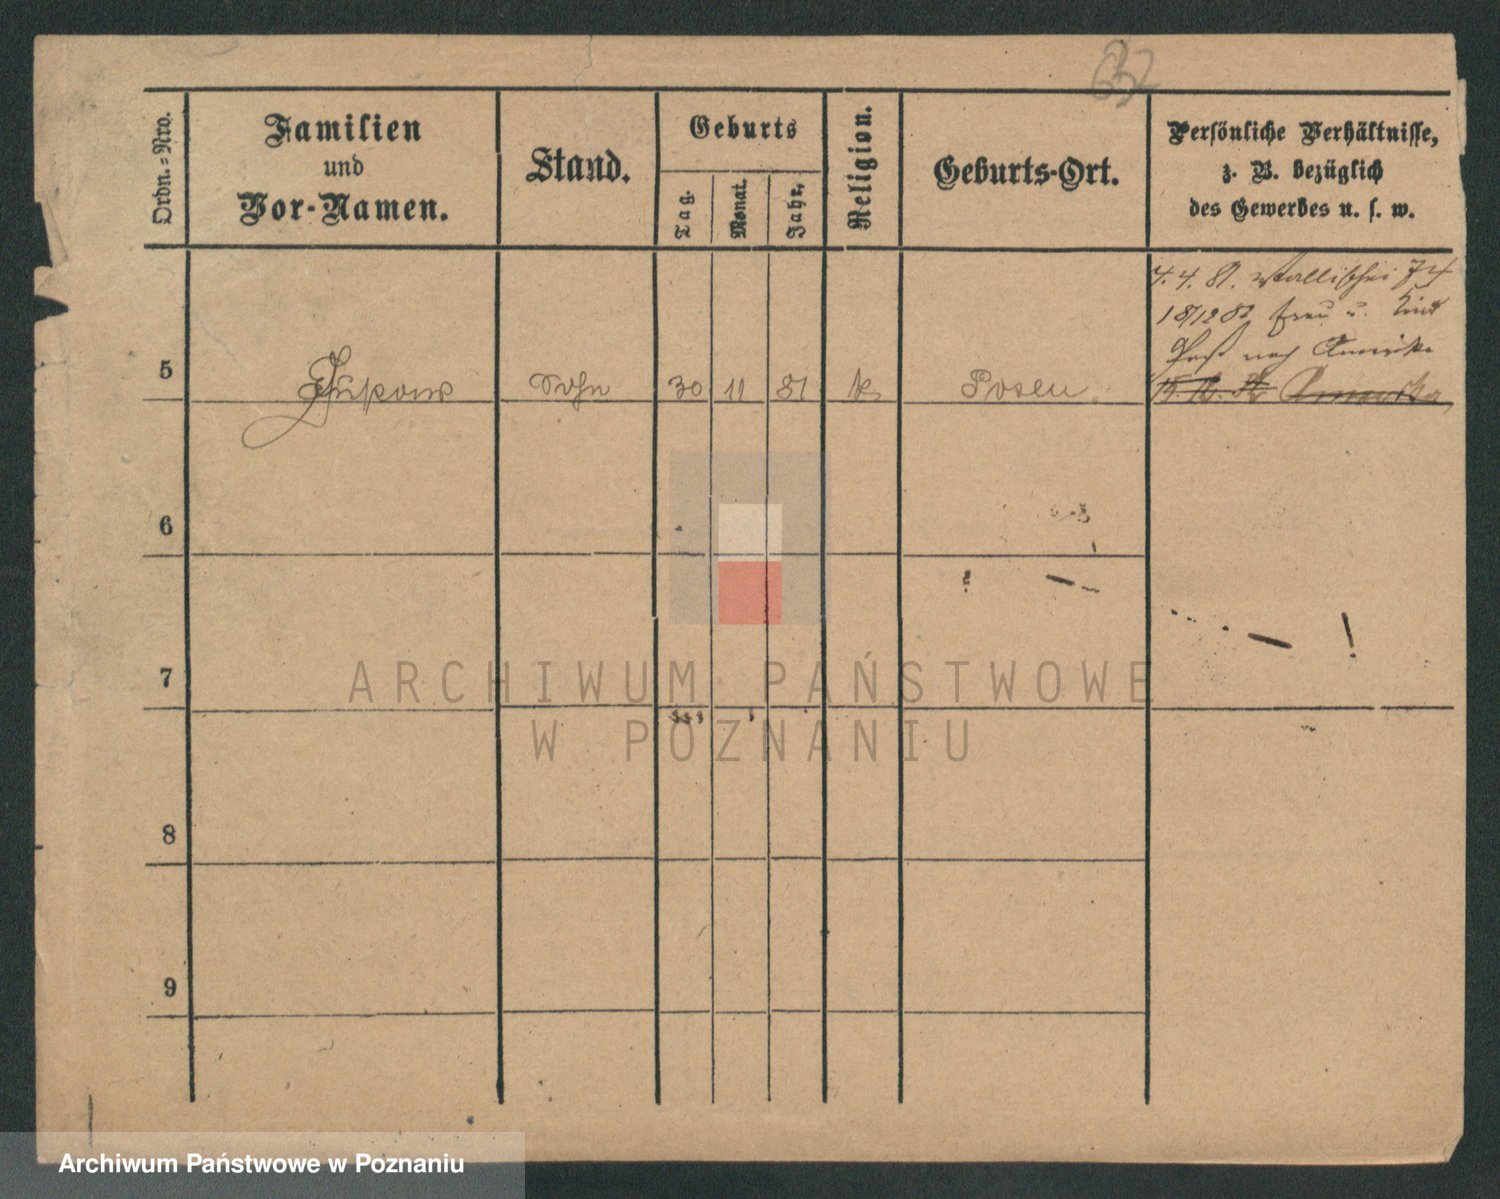 Ordn.=Nro.
Familien
und
Vor-Namen.
Stand.
Geburts
Tag.
Monat.
Jahr.
Religion.
Geburts-Ort.
Persönliche Verhältnisse,
z. B. bezüglich
des Gewerbes u. s. w.
4.4.81. Wallischei 74
18/12 82 Frau u. Kind
Paß nach Amerika
5
Sohn 30 11 81 k Posen
Amerika
6
7
8
9
ARCHIWUM PAŃSTWOWE
W POZNANIU
Archiwum Państwowe w Poznaniu